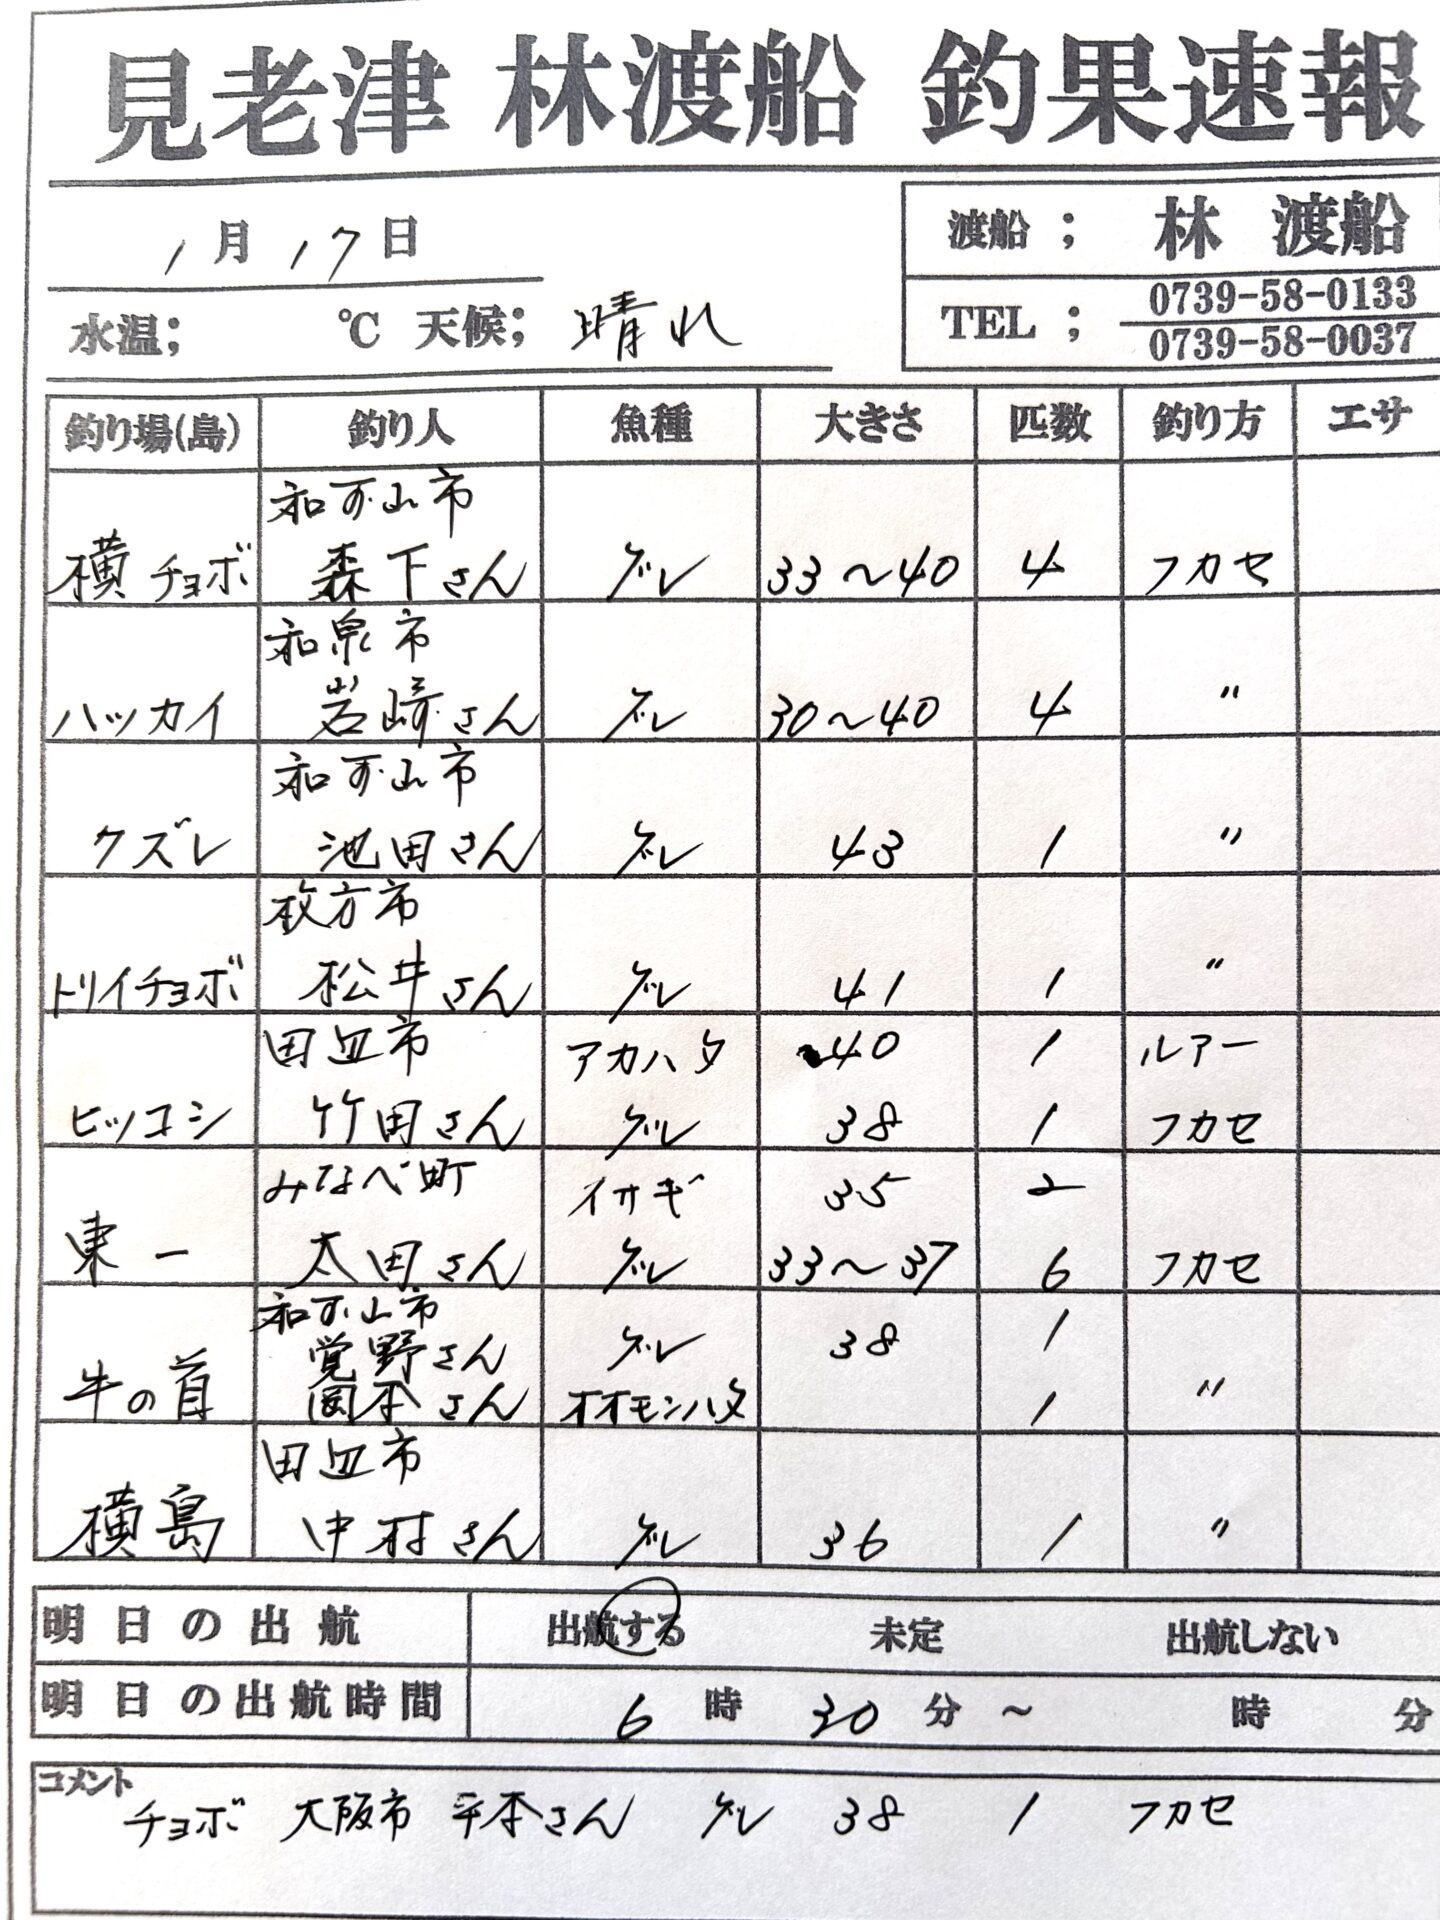 見老津 林渡船 釣果速報
1月17日
渡船； 林 渡船
水温； ℃ 天候； 晴れ
TEL； 0739-58-0133
0739-58-0037
釣り場(島) 釣り人 魚種 大きさ 匹数 釣り方 エサ
和歌山市
横チョボ 森下さん グレ 33～40 4 フカセ
和泉市
ハッカイ 岩崎さん グレ 30～40 4 〃
和歌山市
クズレ 池田さん グレ 43 1 〃
枚方市
トリイチョボ 松井さん グレ 41 1 〃
田辺市 アカハタ 40 1 ルアー
ヒッコシ 竹田さん グレ 38 1 フカセ
みなべ町 イサギ 35 2
東一 太田さん グレ 33～37 6 フカセ
和歌山市
覚野さん グレ 38 1
牛の首 岡本さん オオモンハタ 1 〃
田辺市
横島 中村さん グレ 36 1 〃
明日の出航 出航する 未定 出航しない
明日の出航時間 6時30分～ 時 分
コメント
チョボ 大阪市 平本さん グレ 38 1 フカセ